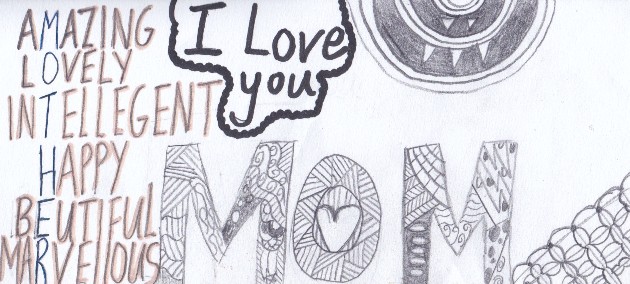 AMAZING
LOVELY
INTELLEGENT
HAPPY
BEUTIFUL
MARVEllOUS
I Love
you
MOM